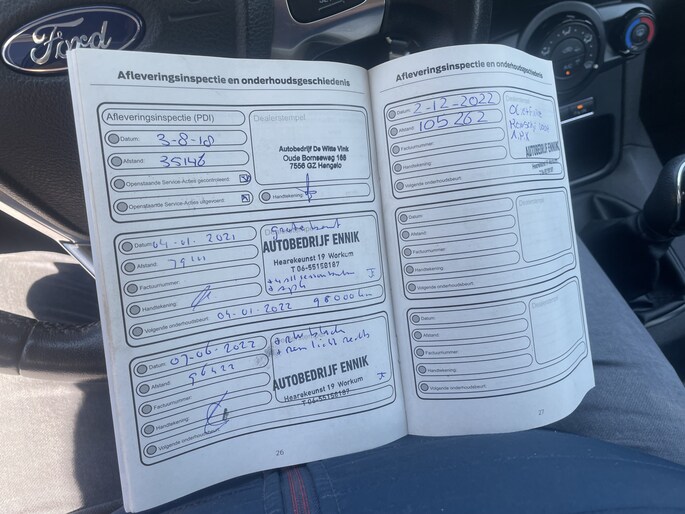 Ford
Afleveringsinspectie en onderhoudsgeschiedenis
Afleveringsinspectie (PDI)
Datum: 3-8-18
Afstand: 35146
Openstaande Service-Acties gecontroleerd:
Openstaande Service-Acties uitgevoerd:
Dealerstempel
Autobedrijf De Witte Vink
Oude Bornseweg 166
7556 GZ Hengelo
Handtekening:
Datum: 04-01-2021
Afstand:
Factuurnummer:
Handtekening:
Volgende onderhoudsbeurt: 04-01-2022 98000 km
grote beurt
AUTOBEDRIJF ENNIK
Hearekeunst 19 Workum
T 06-55158187
Datum: 07-06-2022
Afstand: 96422
Factuurnummer:
Handtekening:
Volgende onderhoudsbeurt:
AUTOBEDRIJF ENNIK
Hearekeunst 19 Workum
T 06-55158187
26
Afleveringsinspectie en onderhoudsgeschiedenis
Datum: 2-12-2022
Afstand: 105262
Factuurnummer:
Handtekening:
Volgende onderhoudsbeurt:
AUTOBEDRIJF ENNIK
Datum:
Afstand:
Factuurnummer:
Handtekening:
Volgende onderhoudsbeurt:
Datum:
Afstand:
Factuurnummer:
Handtekening:
Volgende onderhoudsbeurt:
27